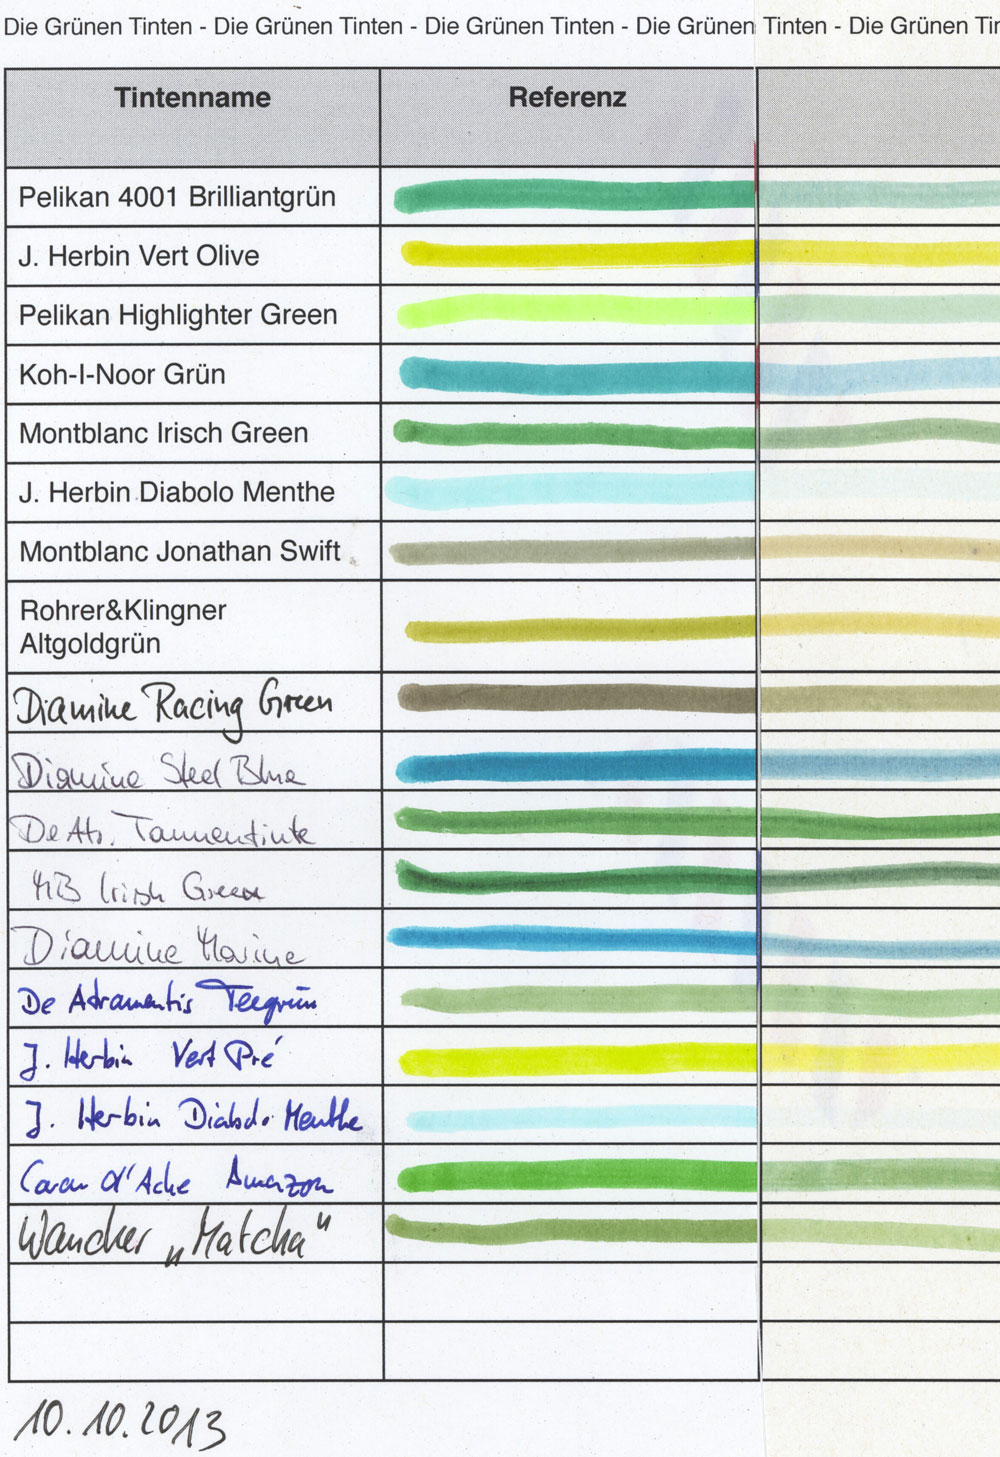 Die Grünen Tinten - Die Grünen Tinten - Die Grünen Tinten - Die Grünen Tinten - Die Grünen Tin
Tintenname Referenz
Pelikan 4001 Brilliantgrün
J. Herbin Vert Olive
Pelikan Highlighter Green
Koh-I-Noor Grün
Montblanc Irisch Green
J. Herbin Diabolo Menthe
Montblanc Jonathan Swift
Rohrer&Klingner
Altgoldgrün
Diamine Racing Green
Diamine Steel Blue
De Atr. Tannentinte
MB Irish Green
Diamine Marine
De Atramentis Teegrün
J. Herbin Vert Pré
J. Herbin Diabolo Menthe
Caran d'Ache Amazon
Wancher „Matcha"
10.10.2013